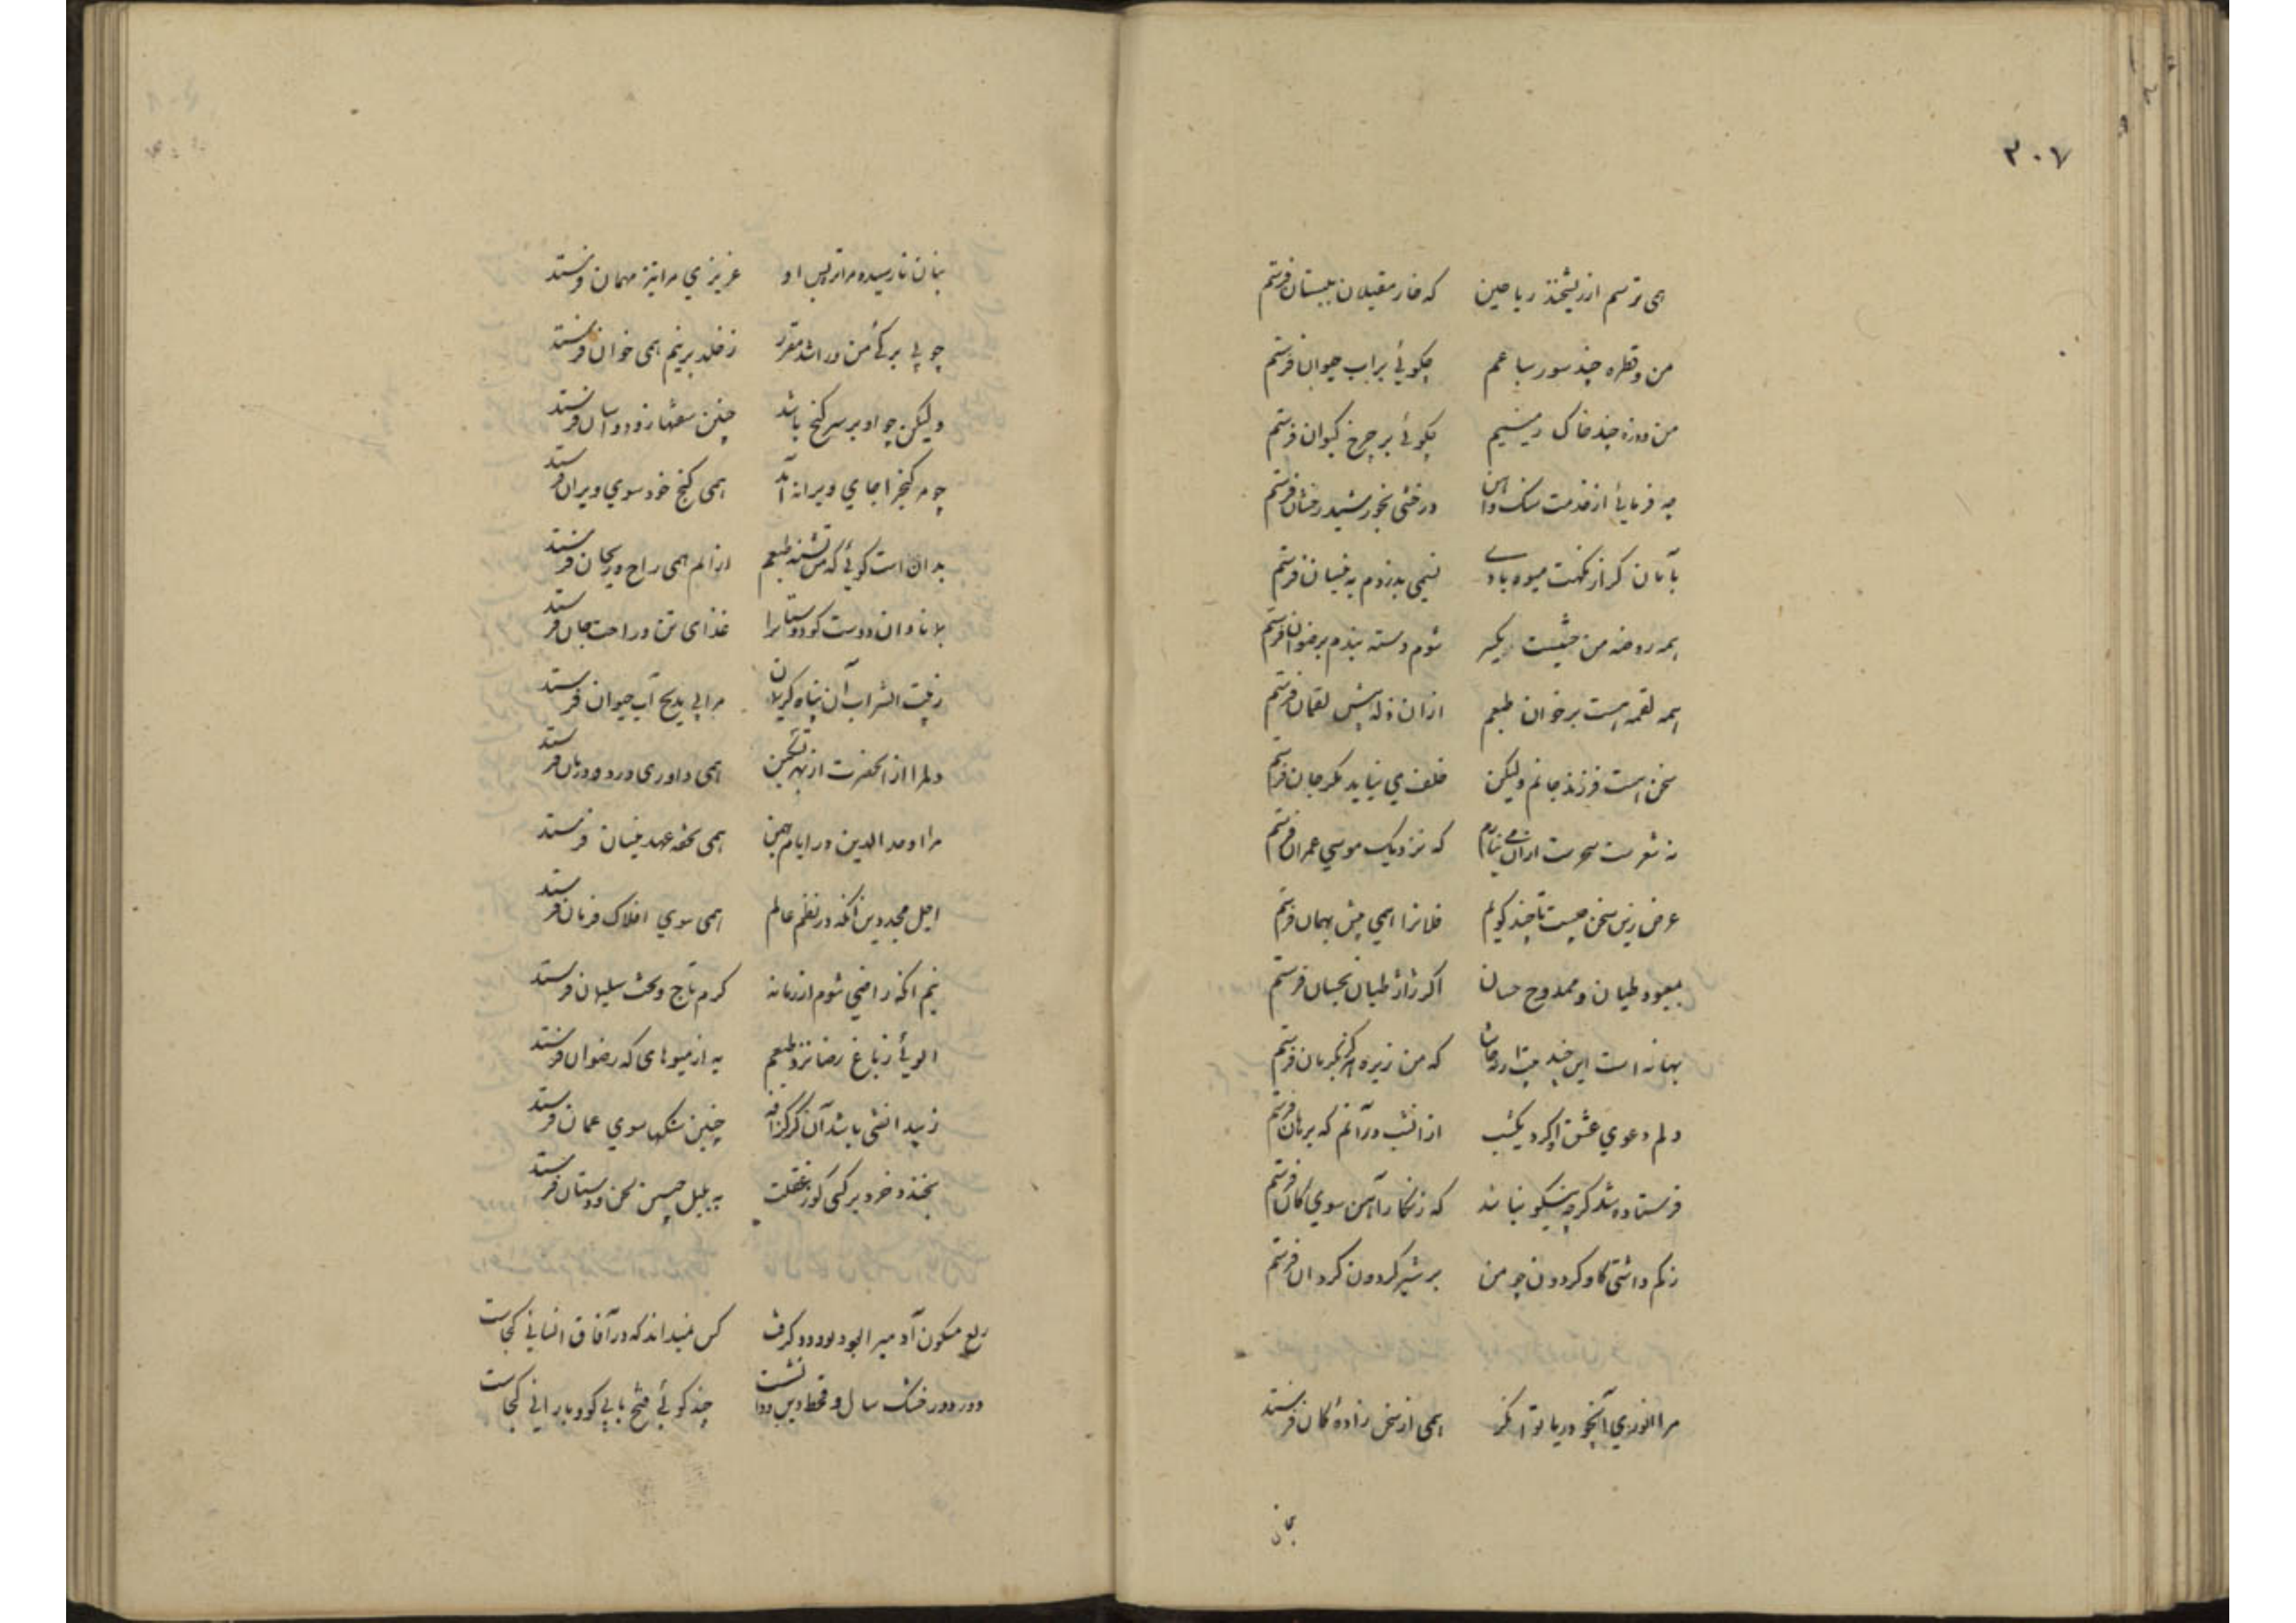 ۳۰۷
همی ترسم از ریشخند ریاحین که خار مغیلان ببستان فرستم
من و قطره چند سور سباعم چکوئی بر اب حیوان فرستم
من و ذره چند خاک زمینیم چکوئی بر چرخ کیوان فرستم
چه فرمائی از خدمت سنک و آهن درخشی بخورشید رخشان فرستم
بآبان کر از نکهت میوه بادی نسیمی بدزدم به نیسان فرستم
همه روضه من حشیشت یکسر شوم دسته بندم برضوان فرستم
همه لقمه است بر خوان طبعم ازان زله پیش لقمان فرستم
سخن هست فرزند جانم ولیکن خلف می نیاید مکر جان فرستم
نه شعرست سحرست ازان می نیارم که نزدیک موسی عمران فرستم
غرض زین سخن چیست تا چند کویم فلانرا همی پیش بهمان فرستم
بمعبود طیان و ممدوح حسان اکر ژاژ طیان بحسان فرستم
بهانه است این چند که من زیره هرکز بکرمان فرستم
دلم دعوی عشق اکرد یکشب ازانشب درآنم که برهان فرستم
فرستاده شد کرچه نیکو نباشد که زنکار آهن سوی کان فرستم
زنم داشتی کاو کردون چو من بر شیر کردون کردان فرستم
مرا انوری آنچو دریا توانکر همی از سخن زاده کان فرستد
بنان
بنان نارسیده مرا تربیت او عزیزی مرا نیز مهمان فرستد
چو بی برکئ من درا شد مقرر ز خلد برینم همی خوان فرستد
ولیکن چو او بر سر کنج باشد چنین سفتها زود و آسان فرستد
چو مر کنجرا جای ویرانه آمد همی کنج خود سوی ویران فرستد
بدان است کوئی که من تشنه طبعم ازانم همی راح و ریحان فرستد
بلا نادان دوست کو دوستانرا غذای تن و راحت جان فرستد
زفیت الشراب آن پناه کریمان مرا پی بپی آب حیوان فرستد
دلم را از الحضرت از بهر تسکین همی داوری درد و درمان فرستد
مرا اوحد الدین در ایام بهمن همی تحفه عهد نیسان فرستد
اجل مجد دین آنکه در نظم عالم همی سوی افلاک فرمان فرستد
نیم آنکه راضی شوم از زمانه کرم تاج و تخت سلیمان فرستد
الوئی ز باغ رضا نزد طبعم به از میوهای که رضوان فرستد
ز بیدانشی باشد آن کز کزافه چنین سنکها سوی عمان فرستد
بخندد خرد بر کسی کو ز غفلت به بلبل چسن لحن و دستان فرستد
ربع مسکون آدمیرا بود دیو و دد کرفت کس نمیداند که در آفاق انسانی کجاست
دور دور خشک سال و قحط دین و دانشست چند کوئی فتح بابی کو و بارانی کجاست